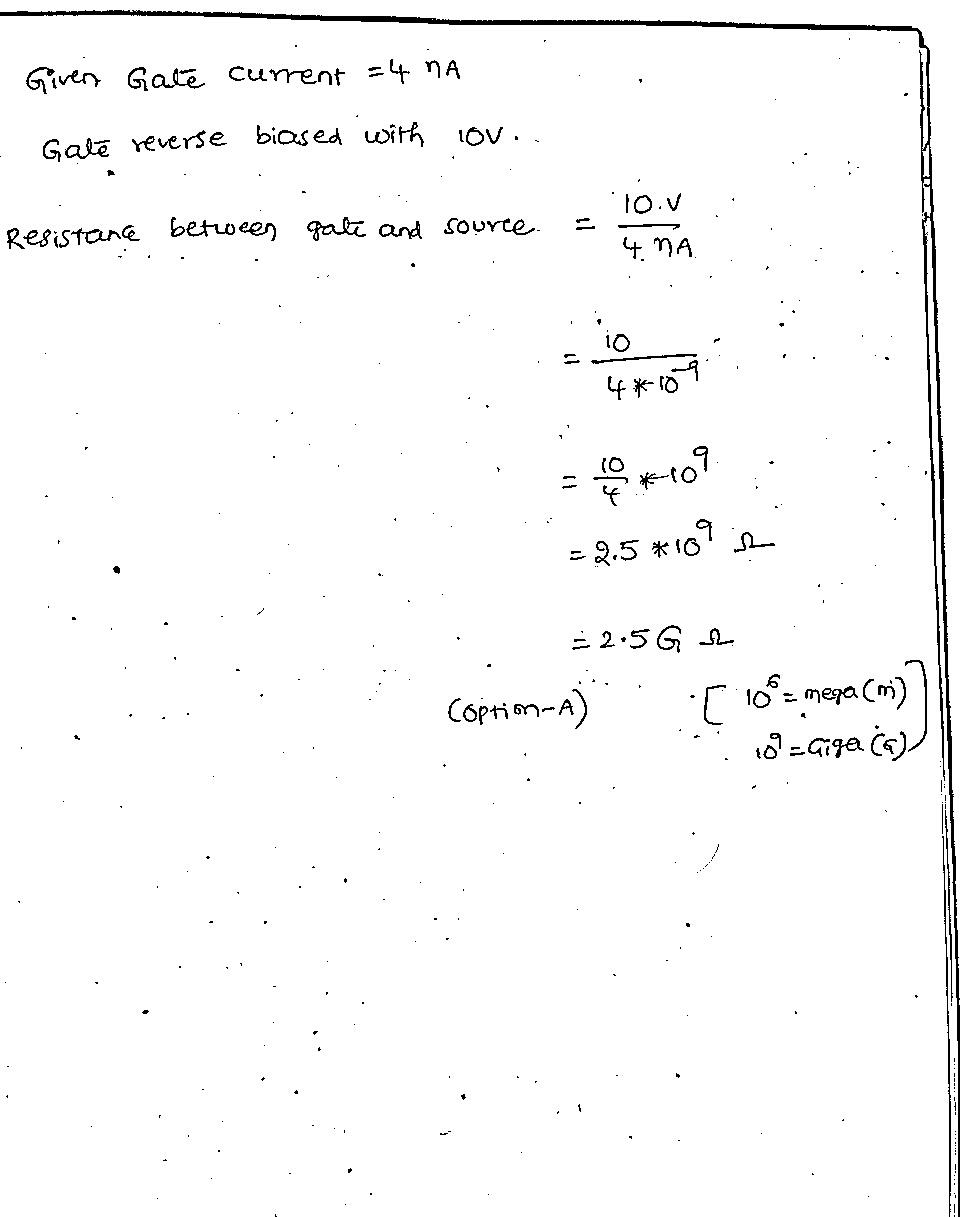 Given Gate current = 4 nA
Gate reverse biased with 10V.
Resistance between gate and source = 10.V / 4. nA
= 10 / 4 * 10^-9
= 10/4 * 10^9
= 2.5 * 10^9 Ω
= 2.5 G Ω
(option-A) [ 10^6 = mega (m)
10^9 = Giga (G) ]